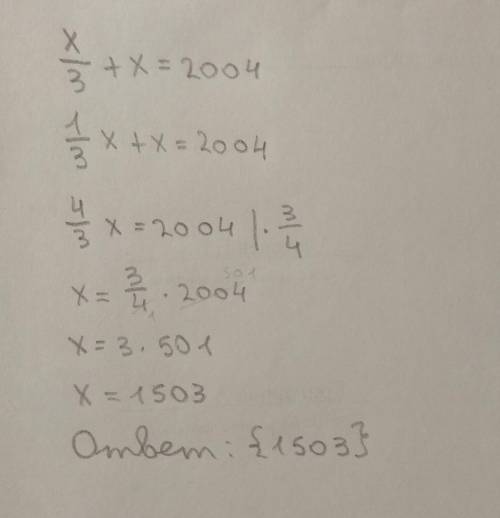 x/3 + x = 2004
1/3 x + x = 2004
4/3 x = 2004 | · 3/4
x = 3/4 · 2004 501 1
x = 3 · 501
x = 1503
Ответ: {1503}